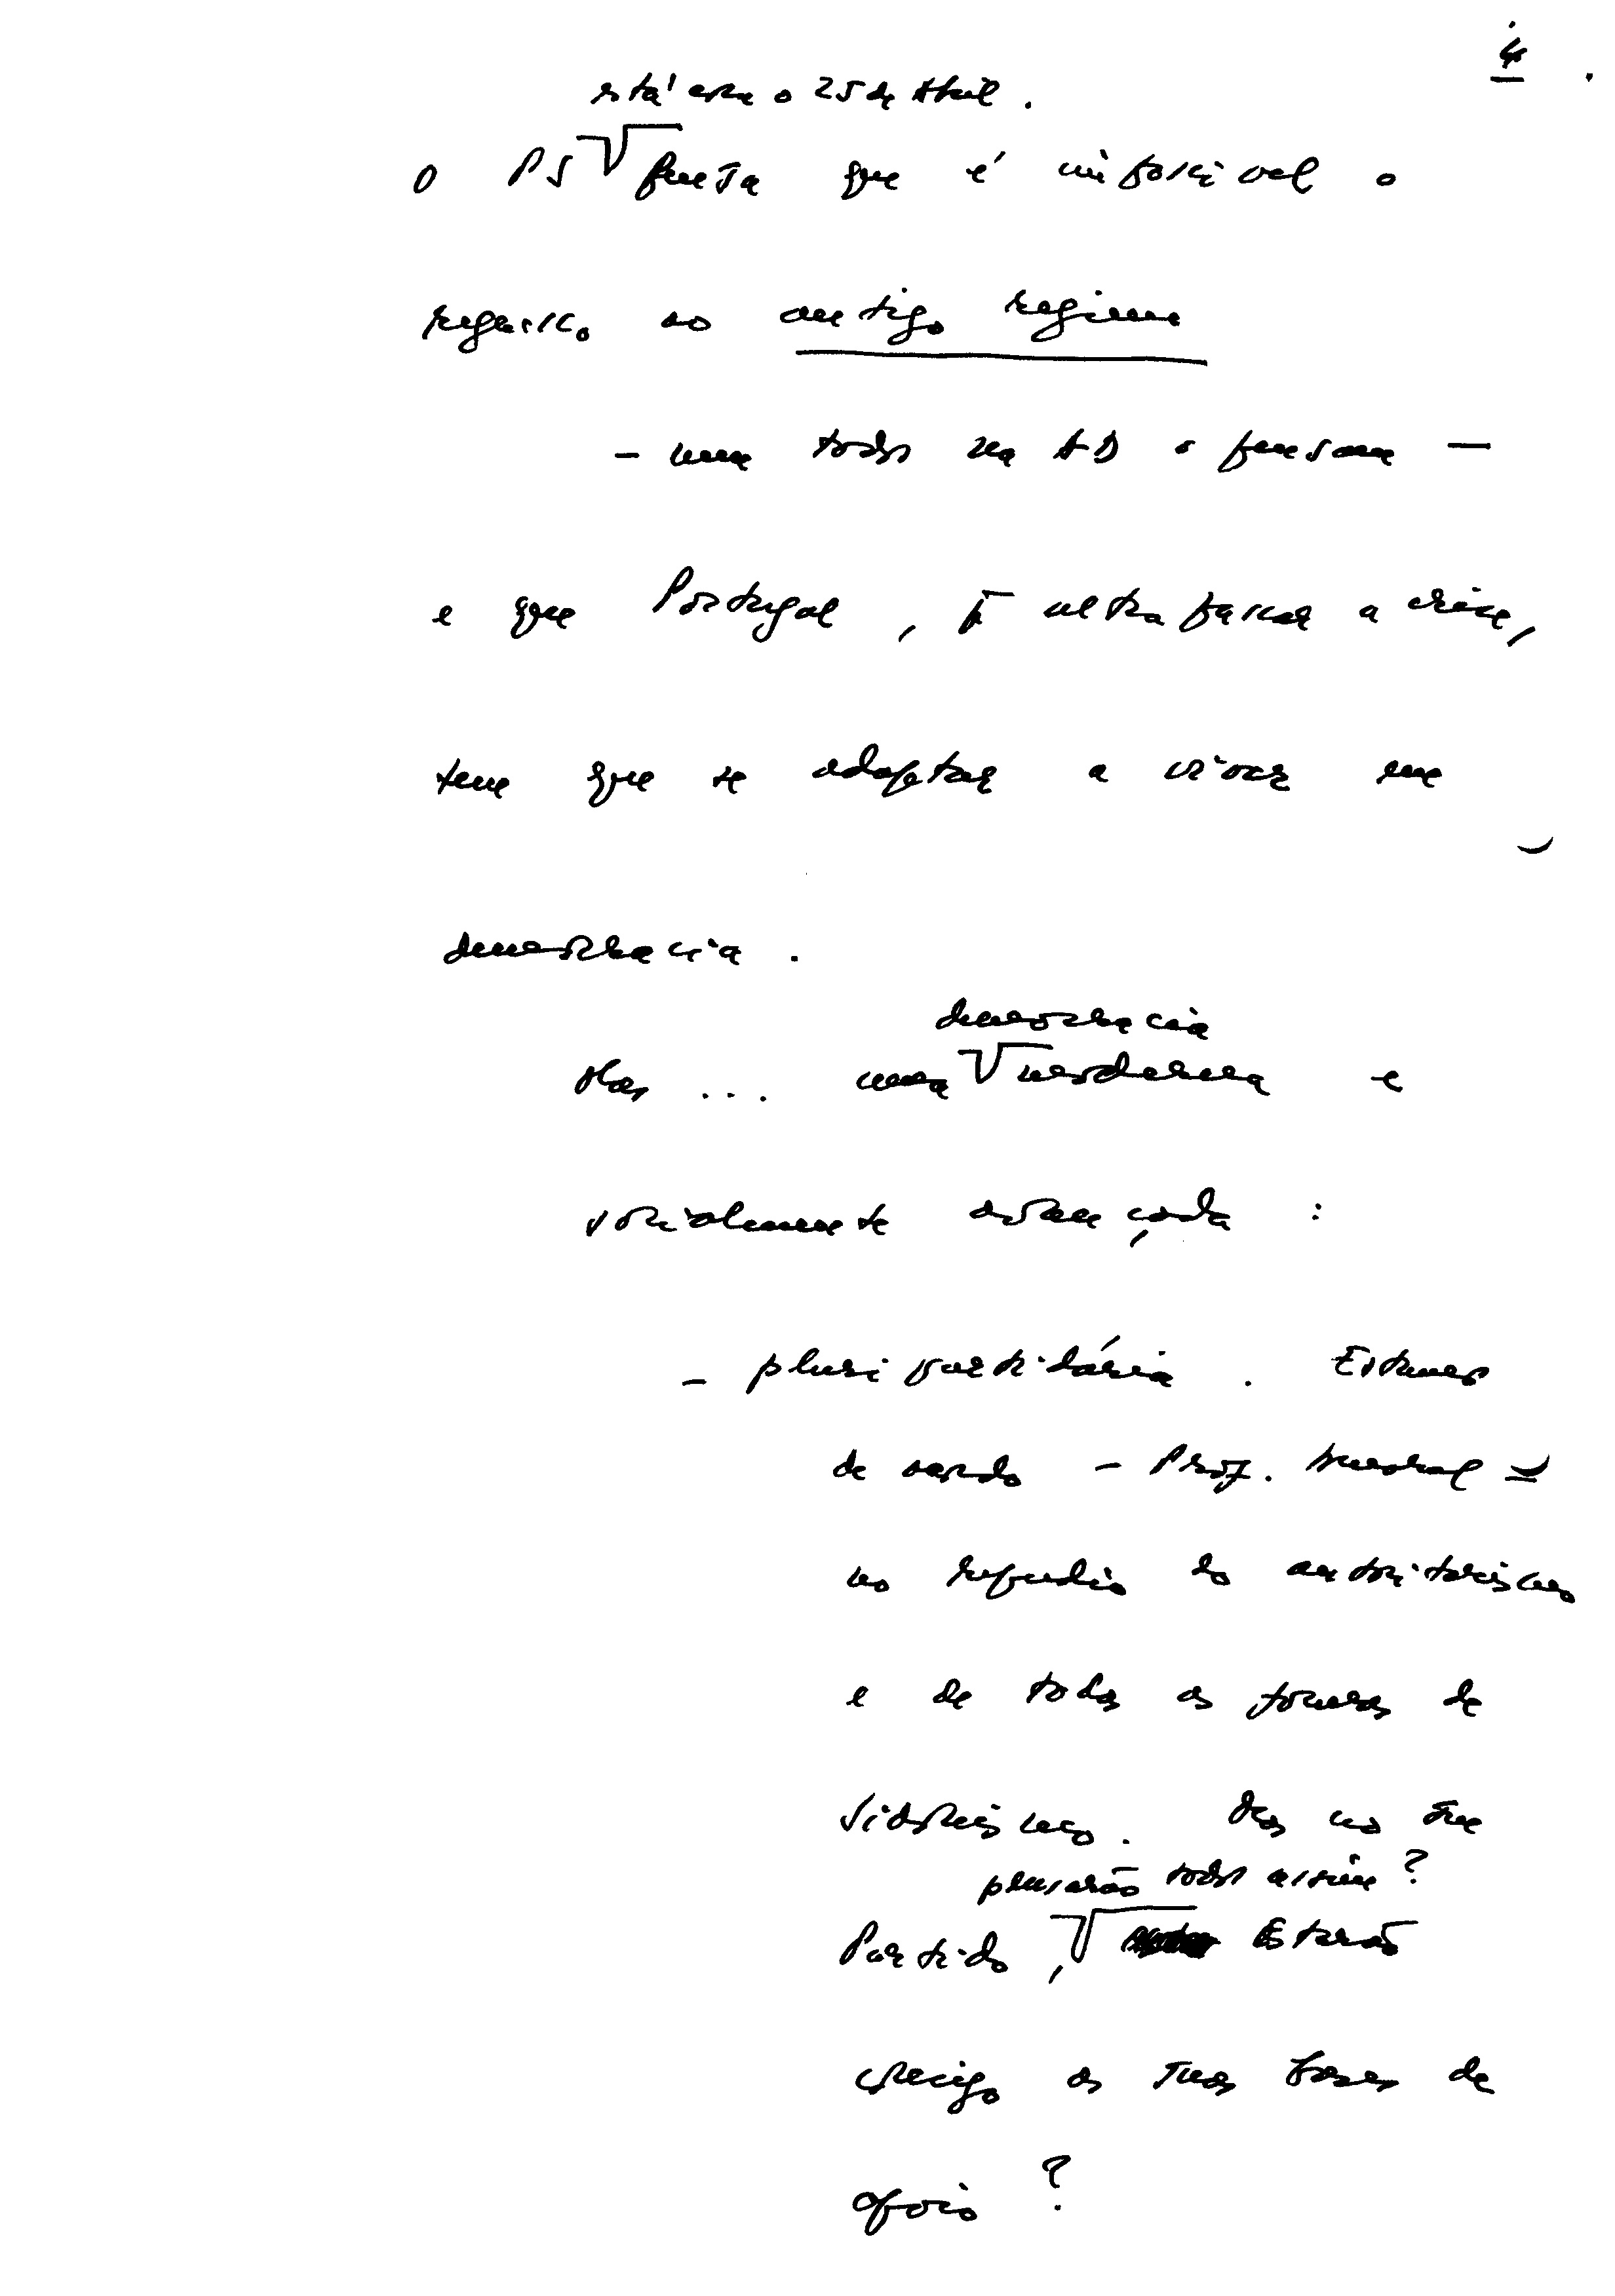 4.
está com o 25 de Abril.
O PS pensa que é impossível o
regresso ao antigo regime
- nem todos na AD o pensam -
e que Portugal, p. ultrapassar a crise,
tem que se adaptar a viver em
democracia.
democracia
Mas ... uma moderna e
socialmente avançada :
- pluripartidária. Estamos
de acordo - Prof.
no repúdio do autoritarismo
e de todas as formas de
Sidonismo. Mas no seu
pensarão todos assim?
Partido, Estarão
consigo as suas bases de
apoio ?